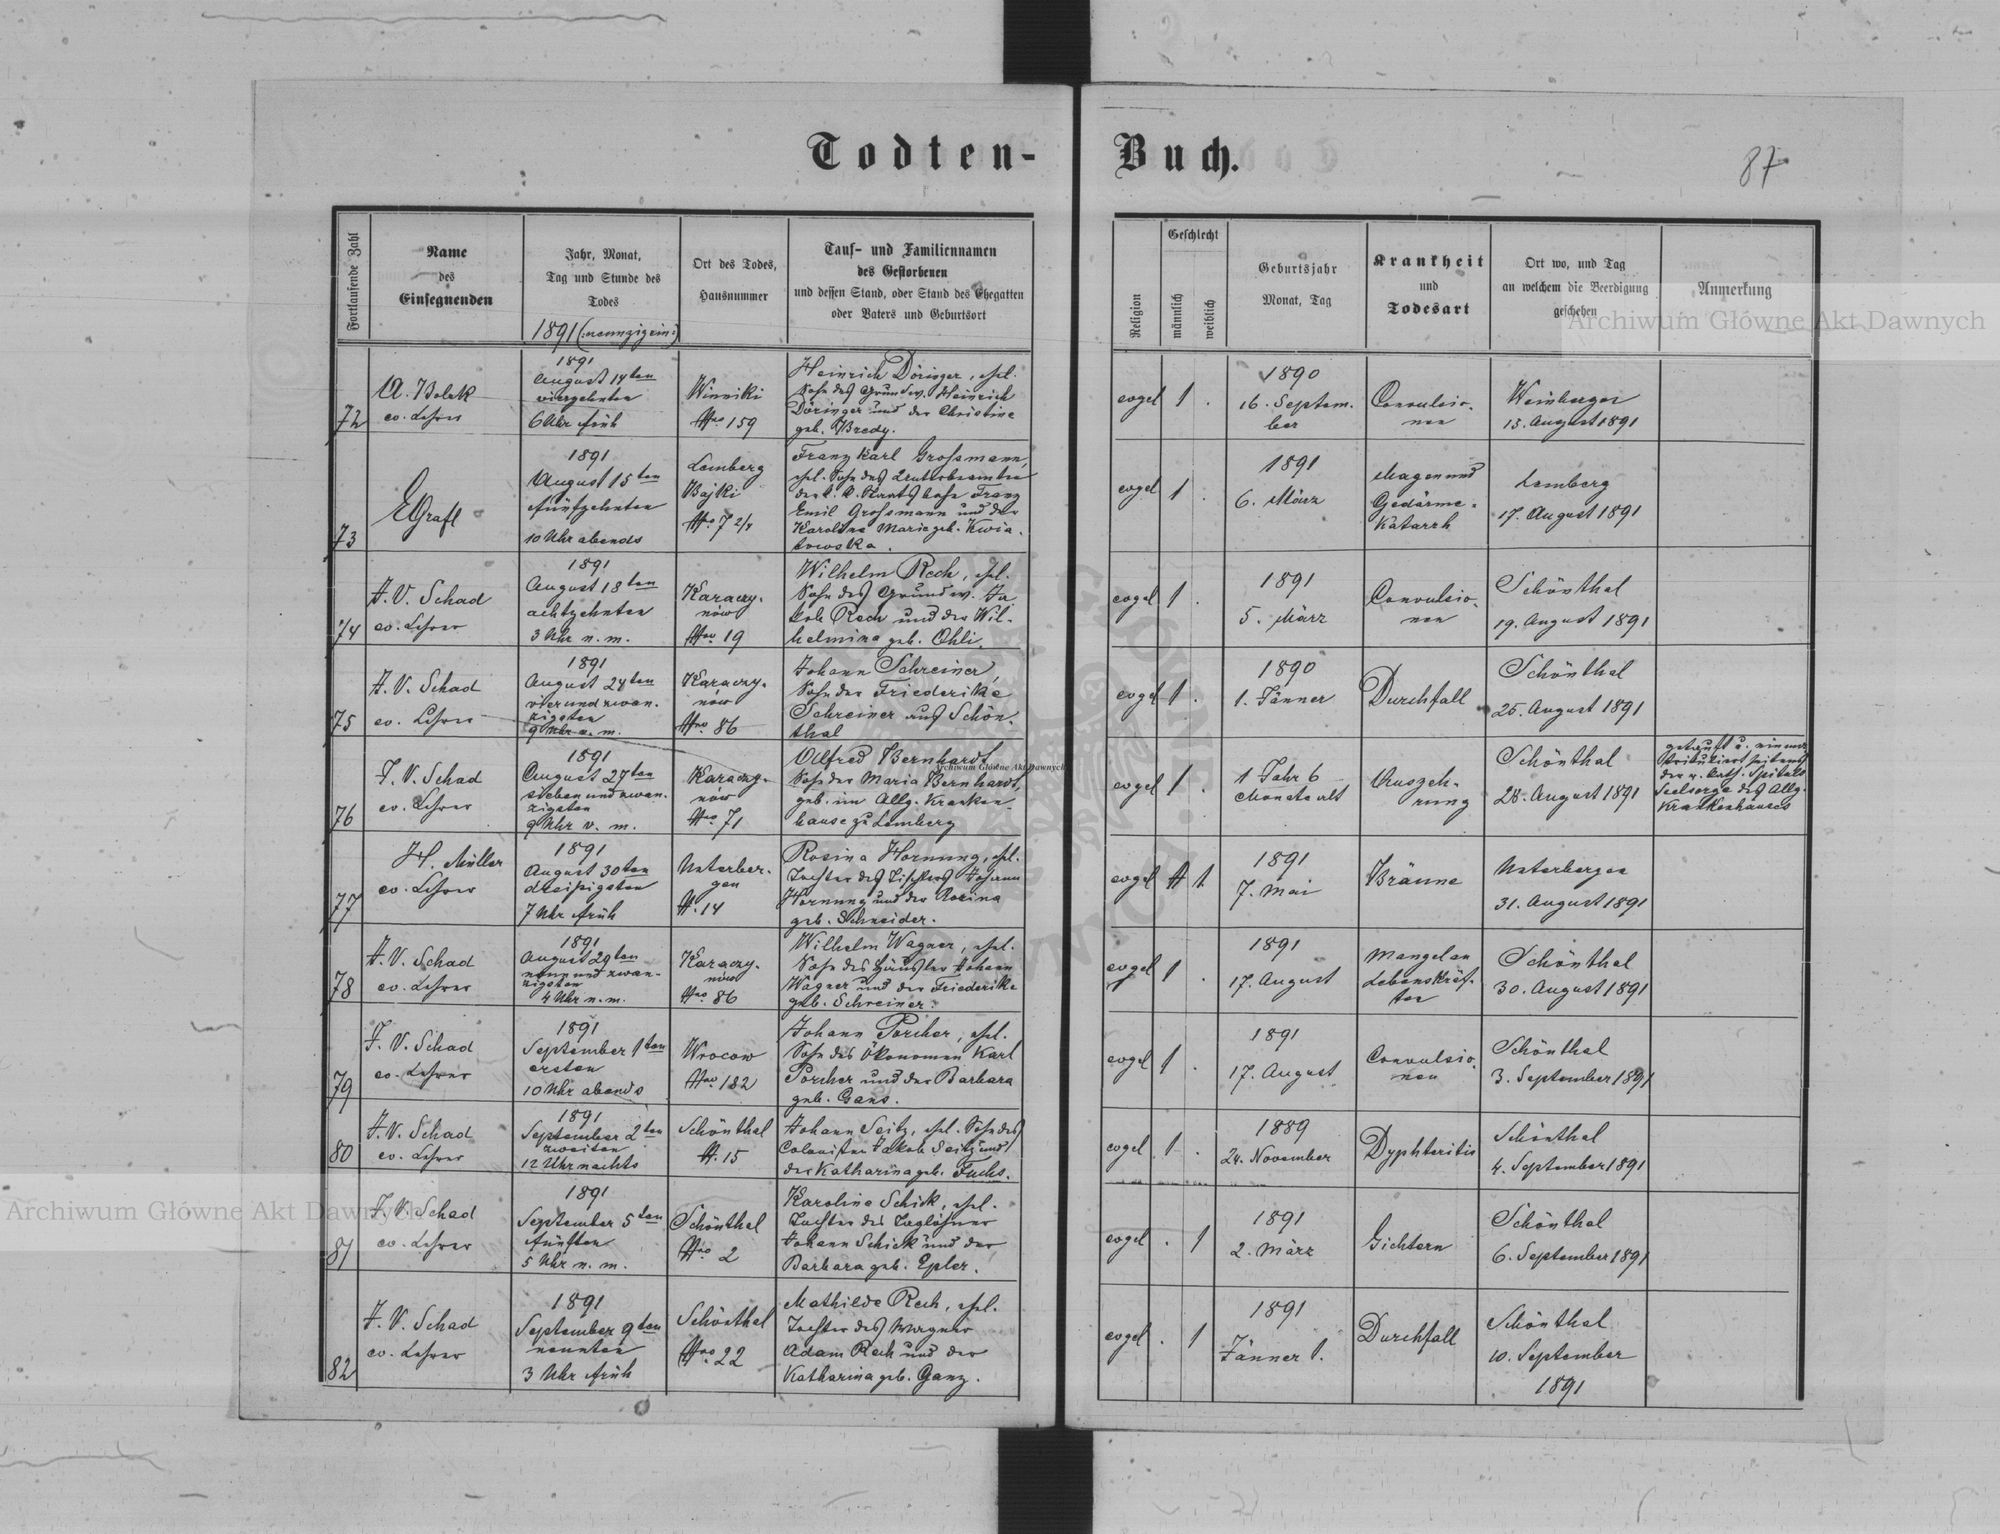 Todten-Buch.
87
Fortlaufende Zahl
Name
des
Einsegnenden
Jahr, Monat,
Tag und Stunde des
Todes
1891 (:neunzigein:)
Ort des Todes,
Hausnummer
Tauf- und Familiennamen
des Gestorbenen
und dessen Stand, oder Stand des Ehegatten
oder Vaters und Geburtsort
Religion
Geschlecht
männlich
weiblich
Geburtsjahr
Monat, Tag
Krankheit
und
Todesart
Ort wo, und Tag
an welchem die Beerdigung
geschehen
Anmerkung
72
A. Bolek
ev. Lehrer
1891
August 14ten
vierzehnten
6 Uhr früh
Winniki
Nro 159
Heinrich Döringer, ehel.
Sohn des Grundw. Heinrich
Döringer und der Christine
geb. Bredy.
evgel
1 .
1890
16. Septem.
ber
Convulsio-
nen
Weinbergen
15. August 1891
73
E Grafl
1891
August 15ten
fünfzehnten
10 Uhr abends
Lemberg
Bajki
Nro 7 2/4
Franz Karl Grossmann,
ehel. Sohn des
der k. k. Staatsbahn Franz
Emil Grossmann und der
Karoline Marie geb. Kwia-
towska.
evgel
1 .
1891
6. März
Magen und
Gedärme-
Katarrh
Lemberg
17. August 1891
74
F. V. Schad
ev. Lehrer
1891
August 18ten
achtzehnten
3 Uhr n. m.
Karaczy-
nów
Nro 19
Wilhelm Rech, ehel.
Sohn des Grundw. Ja
kob Rech und der Wil-
helmina geb. Ohli.
evgel
1 .
1891
5. März
Convulsio-
nen
Schönthal
19. August 1891
75
F. V. Schad
ev. Lehrer
1891
August 24ten
vier und zwan.
zigsten
9 Uhr a. m.
Karaczy-
nów
Nro 86
Johann Schreiner,
Sohn der Friederike
Schreiner aus Schön-
thal
evgel
1 .
1890
1. Jänner
Durchfall
Schönthal
25. August 1891
76
F. V. Schad
ev. Lehrer
1891
August 27ten
sieben und zwan.
zigsten
9 Uhr v. m.
Karaczy-
nów
Nro 71
Alfred Bernhardt
Sohn der Maria Bernhardt,
geb. im Allg. Kranken-
hause zu Lemberg
evgel
1 .
1 Jahr 6
Monate alt
Auszeh-
rung
Schönthal
28. August 1891
getauft u. einma
trikuliert seitens
der r. kath. Spitals
Seelsorge des Allg.
Krankenhauses
77
H. Müller
ev. Lehrer
1891
August 30ten
dreißigsten
7 Uhr früh
Unterber-
gen
N. 14
Rosina Hornung, ehel.
Tochter des Tischlers Johann
Hornung und der Rosina
geb. Schneider.
evgel
1
1891
7. Mai
Bräune
Unterbergen
31. August 1891
78
F. V. Schad
ev. Lehrer
1891
August 29ten
neun und zwan-
zigsten
4 Uhr n. m.
Karaczy-
nów
Nro 86
Wilhelm Wagner, ehel.
Sohn des Häusler Johann
Wagner und der Friederike
geb. Schreiner.
evgel
1 .
1891
17. August
Mangel an
Lebenskräf-
ten
Schönthal
30. August 1891
79
F. V. Schad
ev. Lehrer
1891
September 1ten
ersten
10 Uhr abends
Wrocow
Nro 182
Johann Porcher, ehel.
Sohn des Ökonomen Karl
Porcher und der Barbara
geb. Gans.
evgel
1 .
1891
17. August
Convulsio-
nen
Schönthal
3. September 1891
80
F. V. Schad
ev. Lehrer
1891
September 2ten
zweiten
12 Uhr nachts
Schönthal
N. 15
Johann Seitz, ehel. Sohn des
Colonisten Jakob Seitz und
der Katharina geb. Fuchs.
evgel
. 1 .
1889
24. November
Dyphteritis
Schönthal
4. September 1891
81
F. V. Schad
ev. Lehrer
1891
September 5ten
fünften
5 Uhr n. m.
Schönthal
Nro 2
Karoline Schick, ehel.
Tochter des Taglöhner
Johann Schick und der
Barbara geb. Epler.
evgel
. 1
1891
2. März
Gichtern
Schönthal
6. September 1891
82
F. V. Schad
ev. Lehrer
1891
September 9ten
neunten
3 Uhr früh
Schönthal
Nro 22
Mathilde Rech, ehel.
Tochter des Wagner
Adam Rech und der
Katharina geb. Ganz.
evgel
. 1
1891
Jänner 1.
Durchfall
Schönthal
10. September
1891
Archiwum Główne Akt Dawnych
Archiwum Główne Akt Dawnych
Archiwum Główne Akt Dawnych